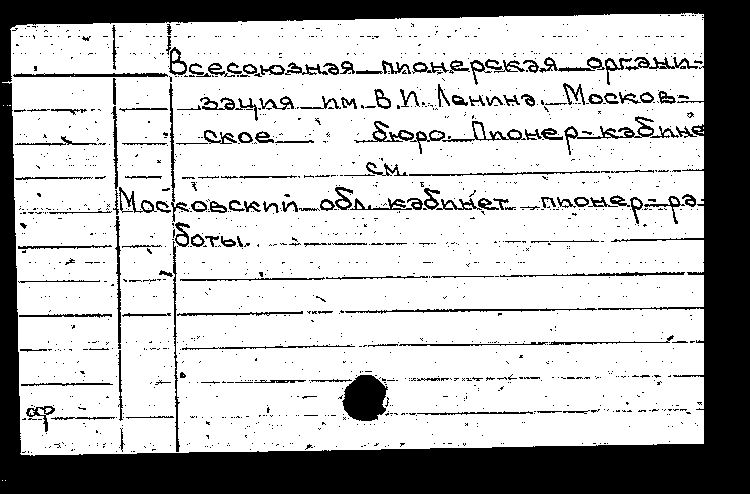 Всесоюзная пионерская органи-
зация им. В.И. Ленина. Москов-
ское бюро. Пионер-кабине
см.
Московский обл. кабинет пионер-ра-
боты.
ар